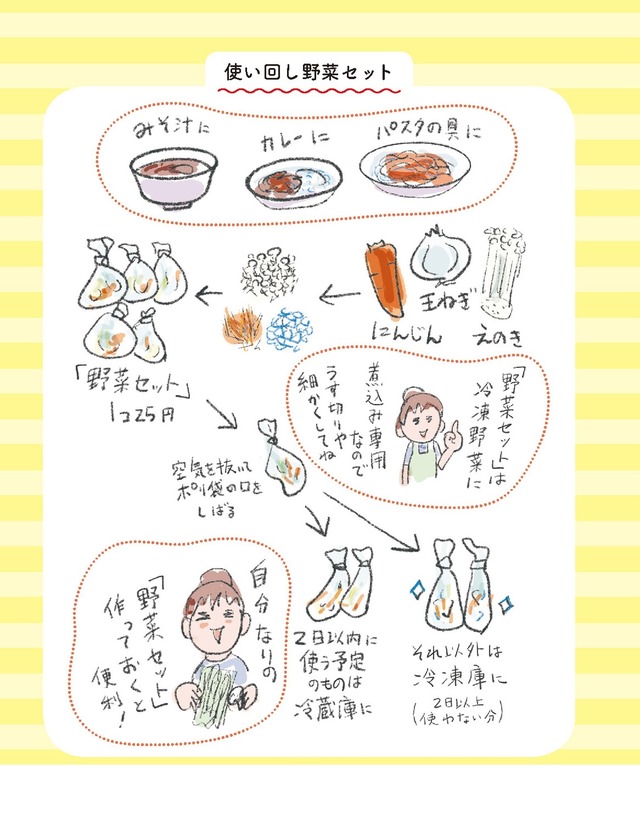 使い回し野菜セット
みそ汁に
カレーに
パスタの具に
にんじん
玉ねぎ
えのき
「野菜セット」
1コ25円
「野菜セット」は
冷凍野菜に
煮込み専用
なので
うす切りや
細かくしてね
空気を抜いて
ポリ袋の口を
しばる
2日以内に
使う予定
のものは
冷蔵庫に
それ以外は
冷凍庫に
(2日以上
使わない分)
自分なりの
「野菜セット」
作っておくと
便利!